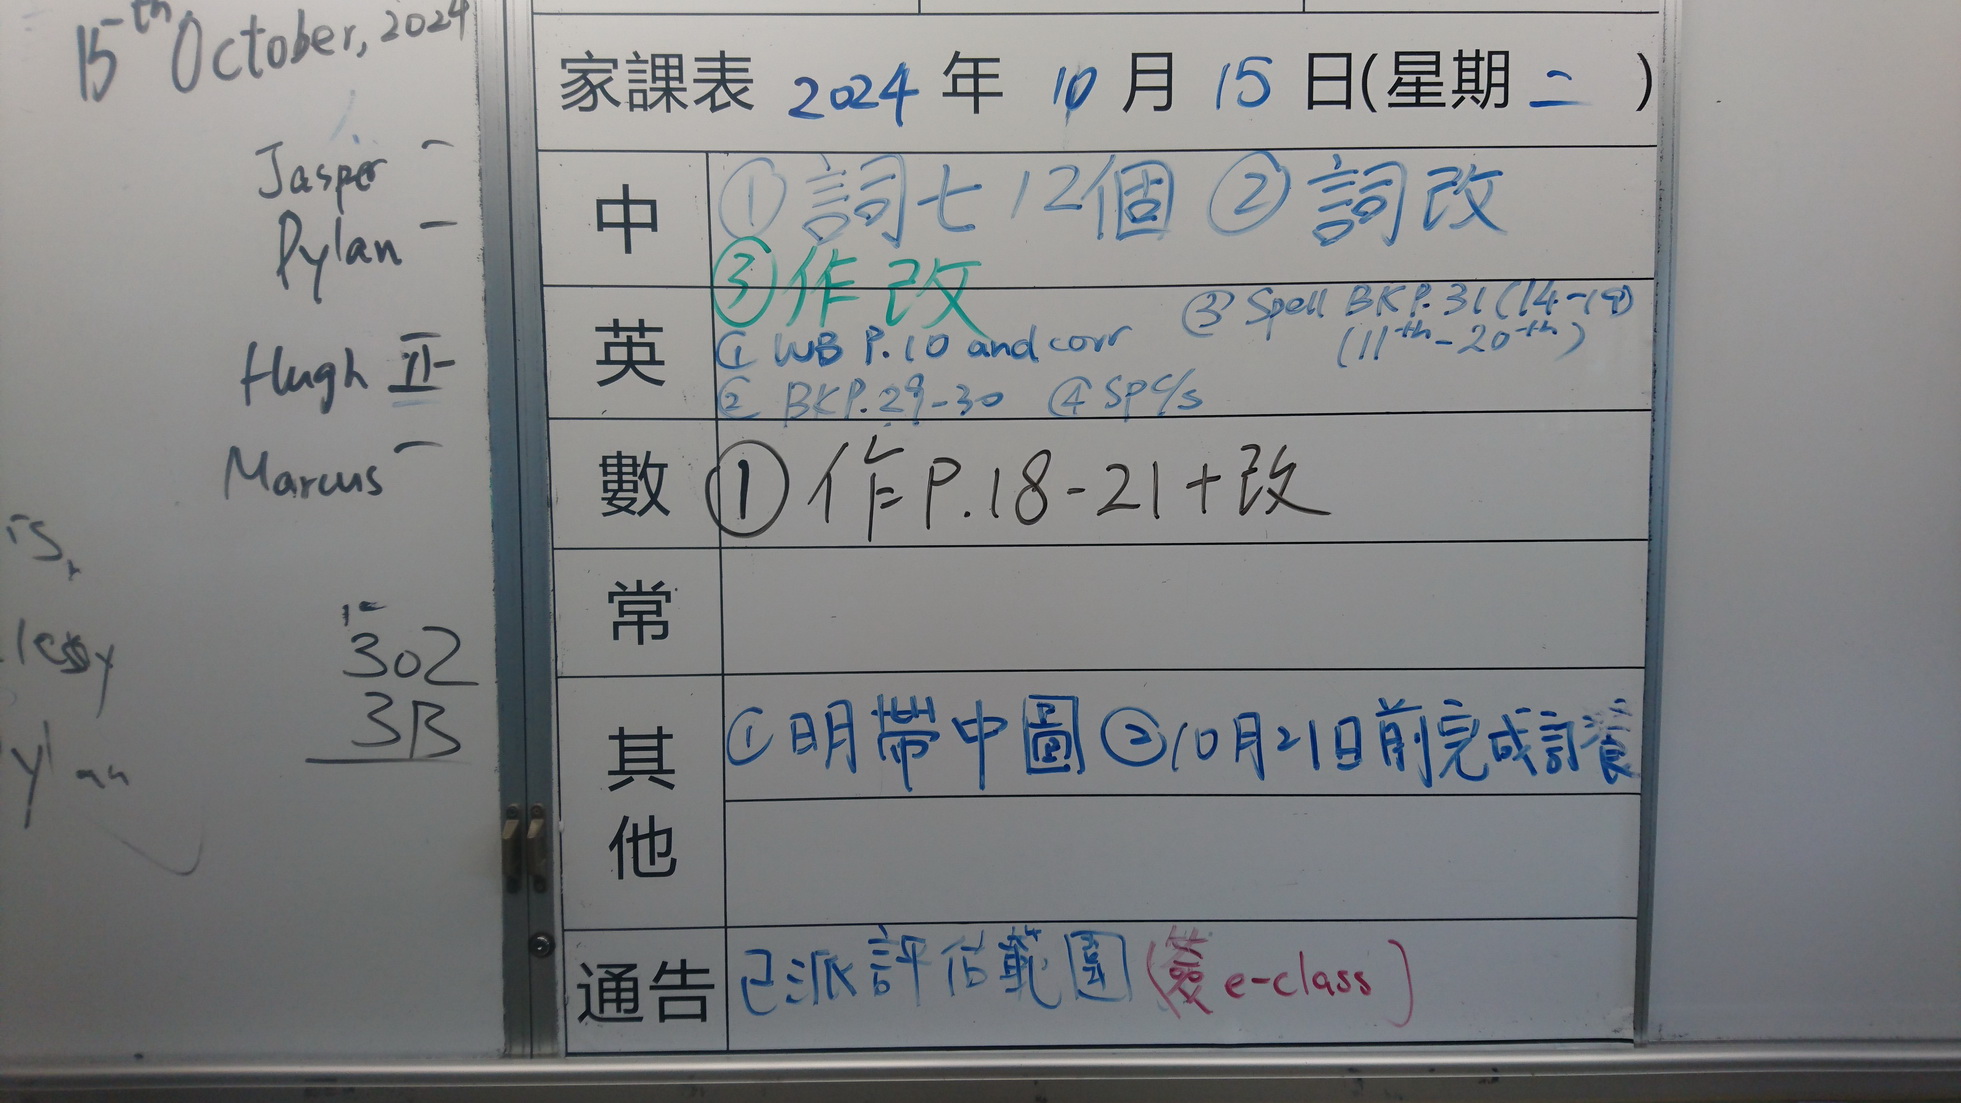 15th October, 2024
Jasper
Dylan
Hugh
Marcus
is,
lessy
ylan
302
3B
家課表 2024 年 10 月 15 日(星期 二 )
中
①詞七12個 ②詞改
③作改
英
① WB P.10 and corr
② BKP.29-30 ④ SP c/s
③ Spell BKP.31(14-19)
(11th-20th)
數
①作P.18-21+改
常
其他
①明帶中圖 ②10月21日前完成訂餐
通告
已派評估範圍(簽e-class)